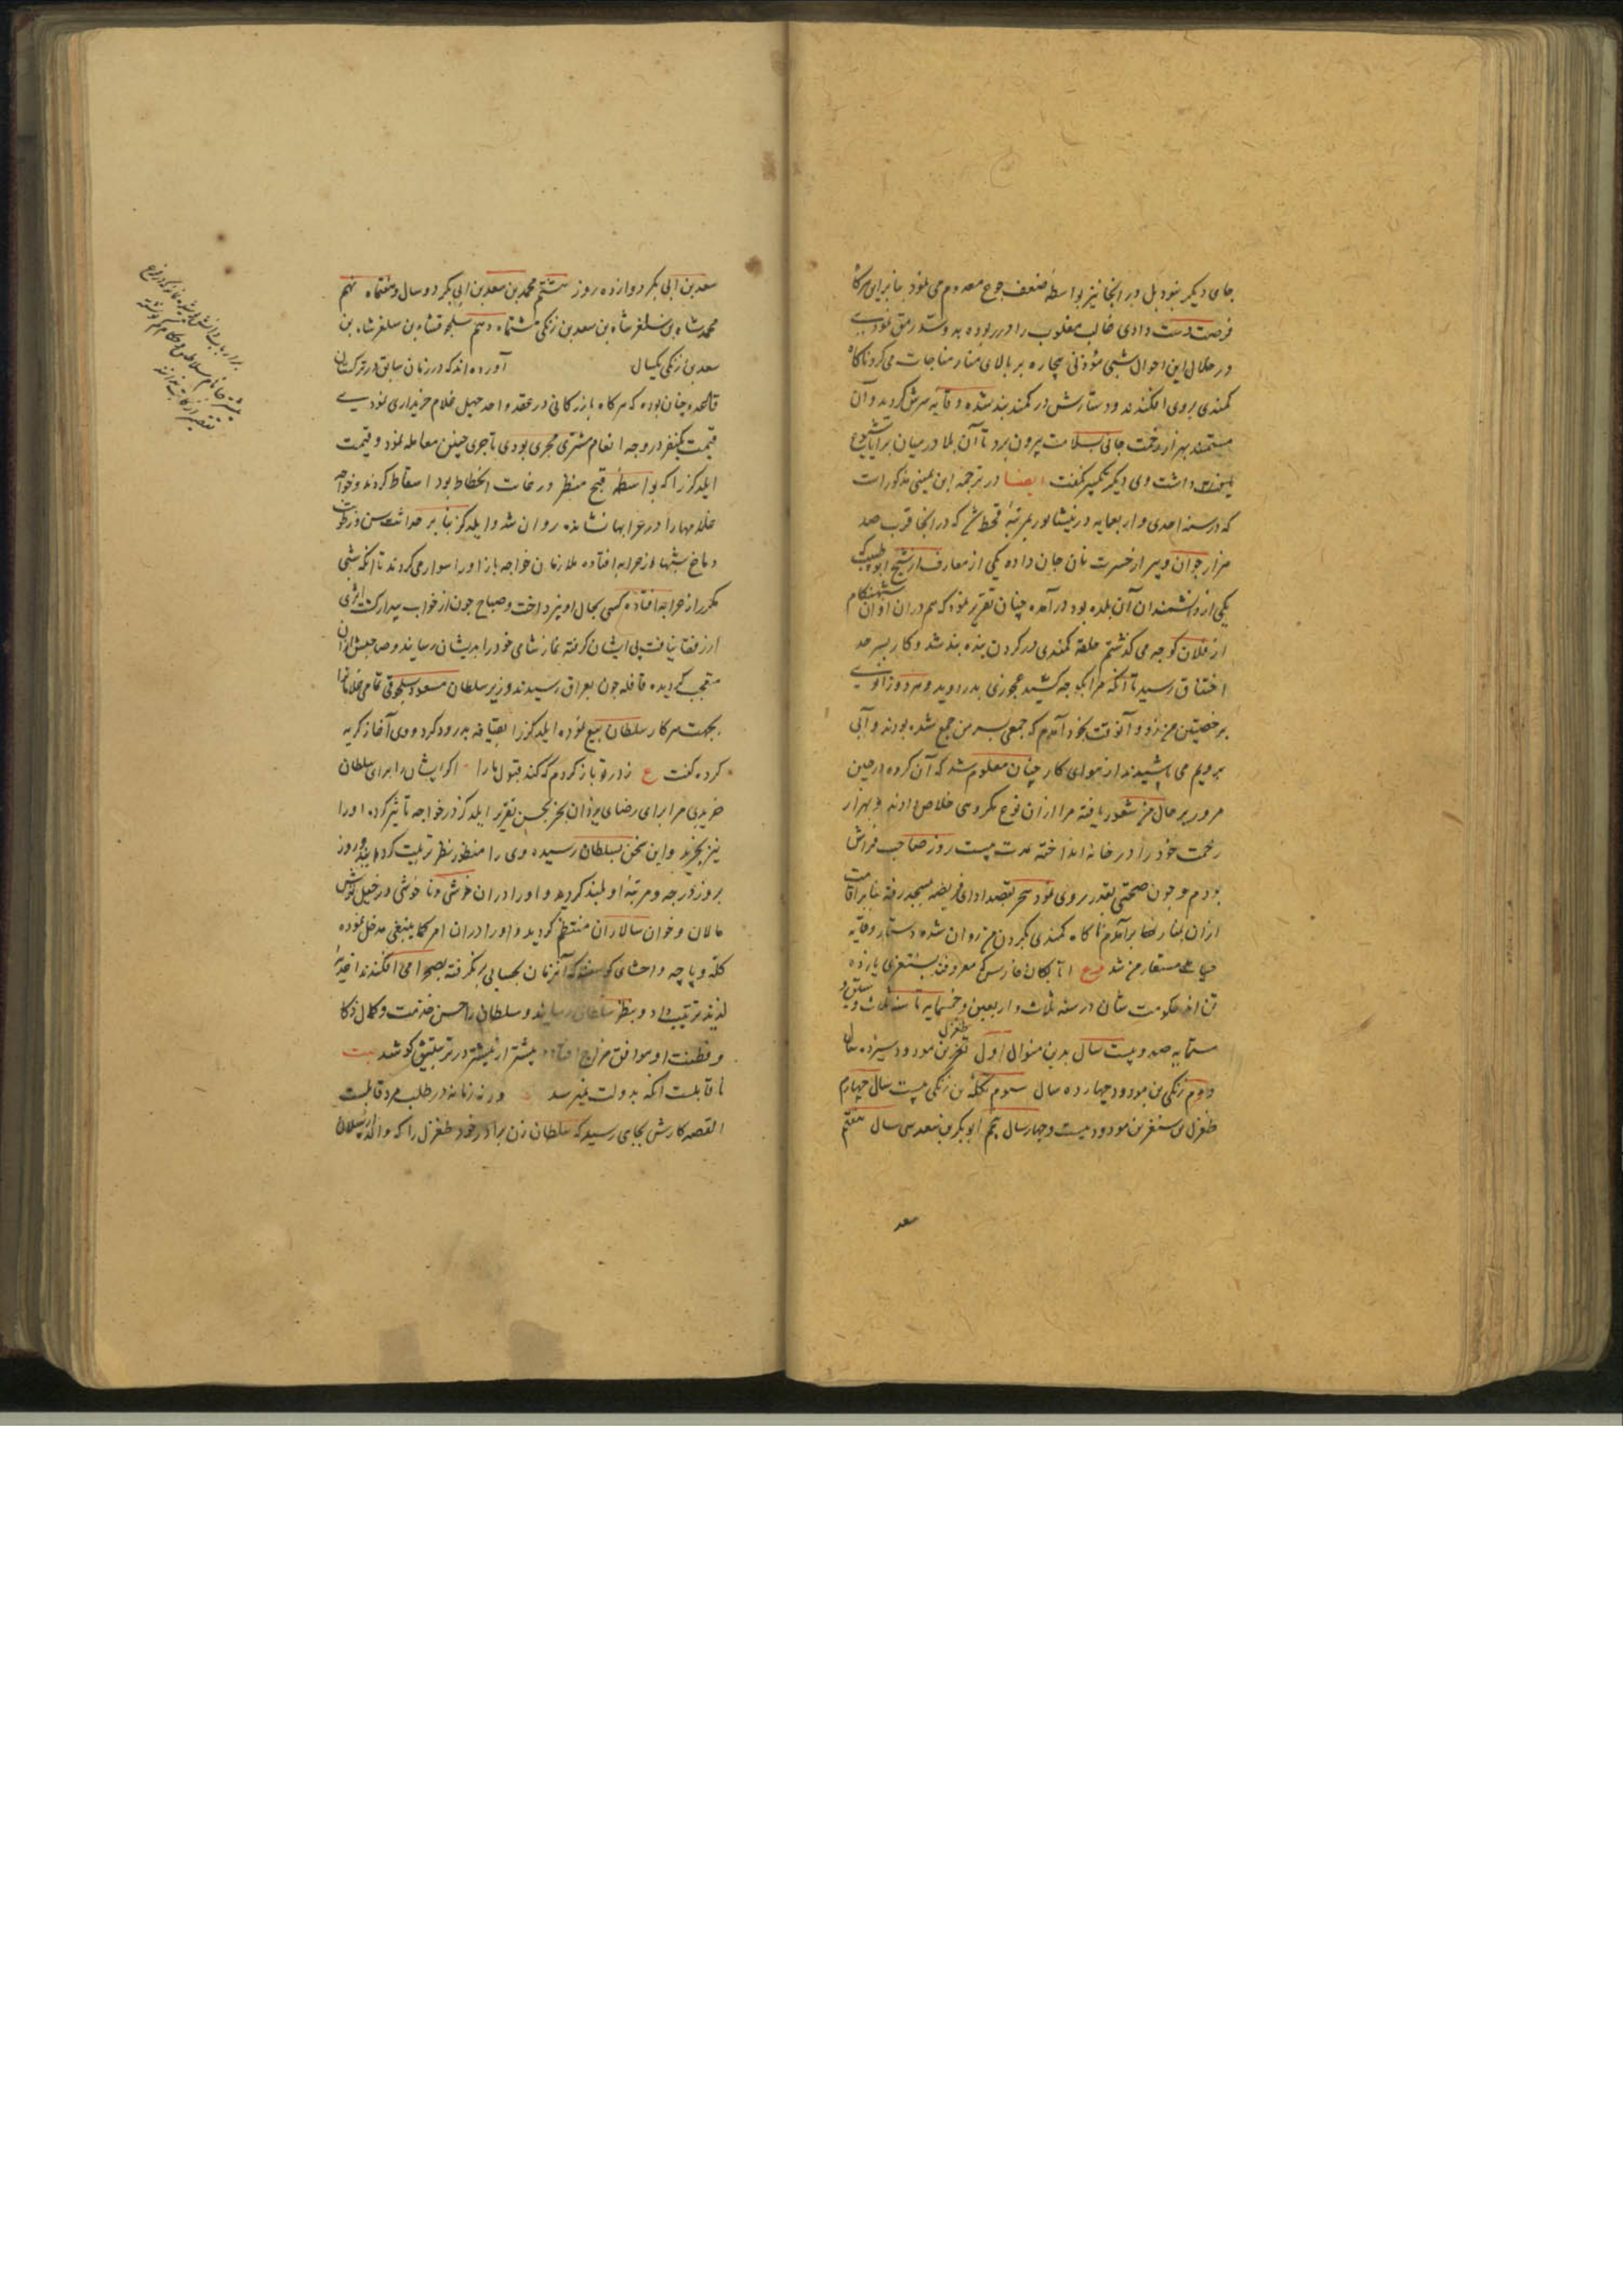 جای دیکر نبود بل در انجا نیز بواسطه ضعف جوع معدوم می نمود بنابرای هرکا
فرصت دست دادی غالب مغلوب را در ربوده بدو سد رمق نمودی
در خلال این احوال شبی مؤذنی بیچاره بر بالای منار مناجات می کرد ناکاه
کمندی بروی افکندند و دستارش در کمند بند شده وقایه سرش کردید و آن
مستمند بهزار زحمت جانی بسلامت بیرون برد تا آن بلا در میان برایا شیوع
داشت وی دیکر تکبیر نکفت ایضا در ترجمه ابن یمینی مذکور است
که در سنه احدی و اربعمایه در نیشابور بمرتبه قحط شد که در انجا قرب صد
هزار جوان و پیر از حسرت نان جان داده یکی از معارف از شیخ ابو
یکی از دانشمندان آن بلده بود در آمده چنان تقریر نمود که هم در ان اوان شبهنکام
از فلان کوچه می کذشتم حلقه کمندی در کردن بنده بند شد و کار بسرحد
اختناق رسید تا آنکه مرا بکوچه کشید عجوزی بدر دوید و هر دو زانوی
بر خصیتین من زد و آنوقت بخود آمدم که جمعی بسر من جمع شده بودند و آبی
برویم می پاشیدند از هوای کار چنان معلوم شد که آن کروه در حین
مرور بر حال من شعور یافته مرا از ان نوع مکروهی خلاص دادند و بهزار
زحمت خود را در خانه انداخته مدت بیست روز صاحب فراش
بودم و چون صحتی بقدر روی نمود سحر بقصد ادای فریضه بمسجد رفته بنابر اقامت
از ان بمنار قضا بر آمدم ناکاه کمندی بکردن من روان شده دستار وقایه
حیات مستعار من شد اتابکان فارس که معروفند بسنقری یازده
تن اند حکومت شان در سنه ثلاث و اربعین و خمسمایه تا سنه ثلاث و ستین و
ستمایه صد و بیست سال بدین منوال اول سنقر بن مودود سیزده سال
دوم زنکی بن مودود چهارده سال سوم تکله بن زنکی بیست سال چهارم
طغرل بن سنقر بن مودود بیست و چهار سال پنجم ابوبکر بن سعد سی سال هفتم
سعد
سعد بن ابی بکر دوازده روز هشتم محمد بن سعد بن ابی بکر دو سال و هفتماه نهم
محمد شاه بن سلغر شاه بن سعد بن زنکی هشتماه دهم سلجوقشاه بن سلغر شاه بن
سعد بن زنکی یکسال آورده اند که در زمان سابق در ترکستان
قاعده چنان بوده که هرکاه بازرکانی در عقد واحد چهل غلام خریداری نمودی
قیمت یکنفر در وجه انعام مشتری مجری بودی تاجری چنین معامله نمود و قیمت
ایلدکز را که بواسطه قبح منظر در غایت انحطاط بود اسقاط کردند و خواجه
غلامها را در عرابها نشانده روان شد و ایلدکز بنابر حداثت سن و رطوبت
دماغ شبها از عرابه افتاده ملازمان خواجه باز اورا سوار می کردند تا آنکه شبی
مکرر از عرابه افتاده کسی بحال او نپرداخت و صباح چون از خواب بیدار کشت اثری
از رفقا نیافت پی ایشان کرفته نماز شامی خود را بدیشان رسانید و صاحبش از ان
متعجب کردیده قافله چون بعراق رسیدند وزیر سلطان مسعود سلجوقی تمامی غلامانرا
بجهت سرکار سلطان بیع نموده ایلدکز را بقیافه بد رد کرد و وی آغاز کریه
کرده کفت ع زد رو باز کردم که کند قبول ما را اکر ایشان را برای سلطان
خریدی مرا برای رضای یزدان بخر بحسن تقریر ایلدکز در خواجه تاثیر کرده اورا
نیز بخرید و این سخن بسلطان رسیده وی را منظور نظر تربیت کردانید و روز
بروز درجه و مرتبه او بلند کردید و اورا در ان خوشی و ناخوشی در خیل
سالاران و خوان سالاران منتظم کردید و اورا در ان امر کماینبغی مدخل نموده
کله و پاچه و احشای کوسفند که آنزمان بحسابی بر نکرفته بصحرا می افکندند اغذیه
لذیذ ترتیب داد و بنظر سلطان رسانید و سلطان را حسن خدمت و کمال ذکا
و فطنت او موافق مزاج افتاده بیشتر از پیشتر در تربیتش کوشید بیت
نا قابلست آنکه بدولت نمی رسد ورنه زمانه در طلب مرد قابلست
القصه کارش بجای رسید که سلطان زن برادر خود طغرل را که والده ارسلان